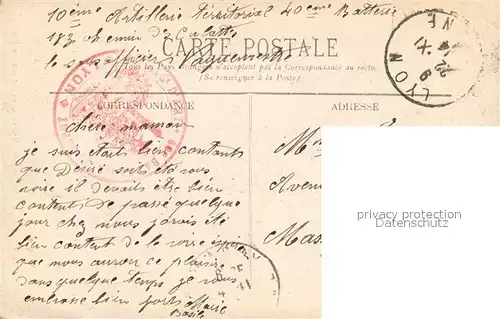 10ème Artillerie Térritorial 40eme Batterie
183 chemin de Culatte
le sous officier Vaguemestre
CARTE POSTALE
Tous les Pays étrangers n'acceptent pas la Correspondance au recto.
(Se renseigner à la Poste.)
LYON
CORRESPONDANCE
ADRESSE
chère maman
je suis etait bien contants
que Désiré soit été vous
voire il devaits être bien
contents de passé quelque
jour chez nous jorais été
bien content de le voire
que nous auron ce plaisir
dans quelque temps je vous
embrasse bien forts Marie
Avenu
Mas
privacy protection
Datenschutz